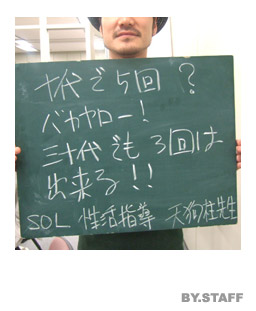 十代で5回？
バカヤロー！
三十代でも3回は
出来る!!
SOL 性活指導 天狗柱先生
BY.STAFF